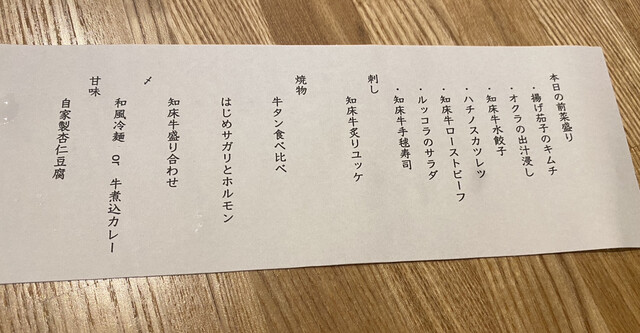 本日の前菜盛り
・揚げ茄子のキムチ
・オクラの出汁浸し
・知床牛水餃子
・ハチノスカツレツ
・知床牛ローストビーフ
・ルッコラのサラダ
・知床牛手毬寿司
刺し
知床牛炙りユッケ
焼物
牛タン食べ比べ
はじめサガリとホルモン
知床牛盛り合わせ
〆
和風冷麺 or 牛煮込カレー
甘味
自家製杏仁豆腐